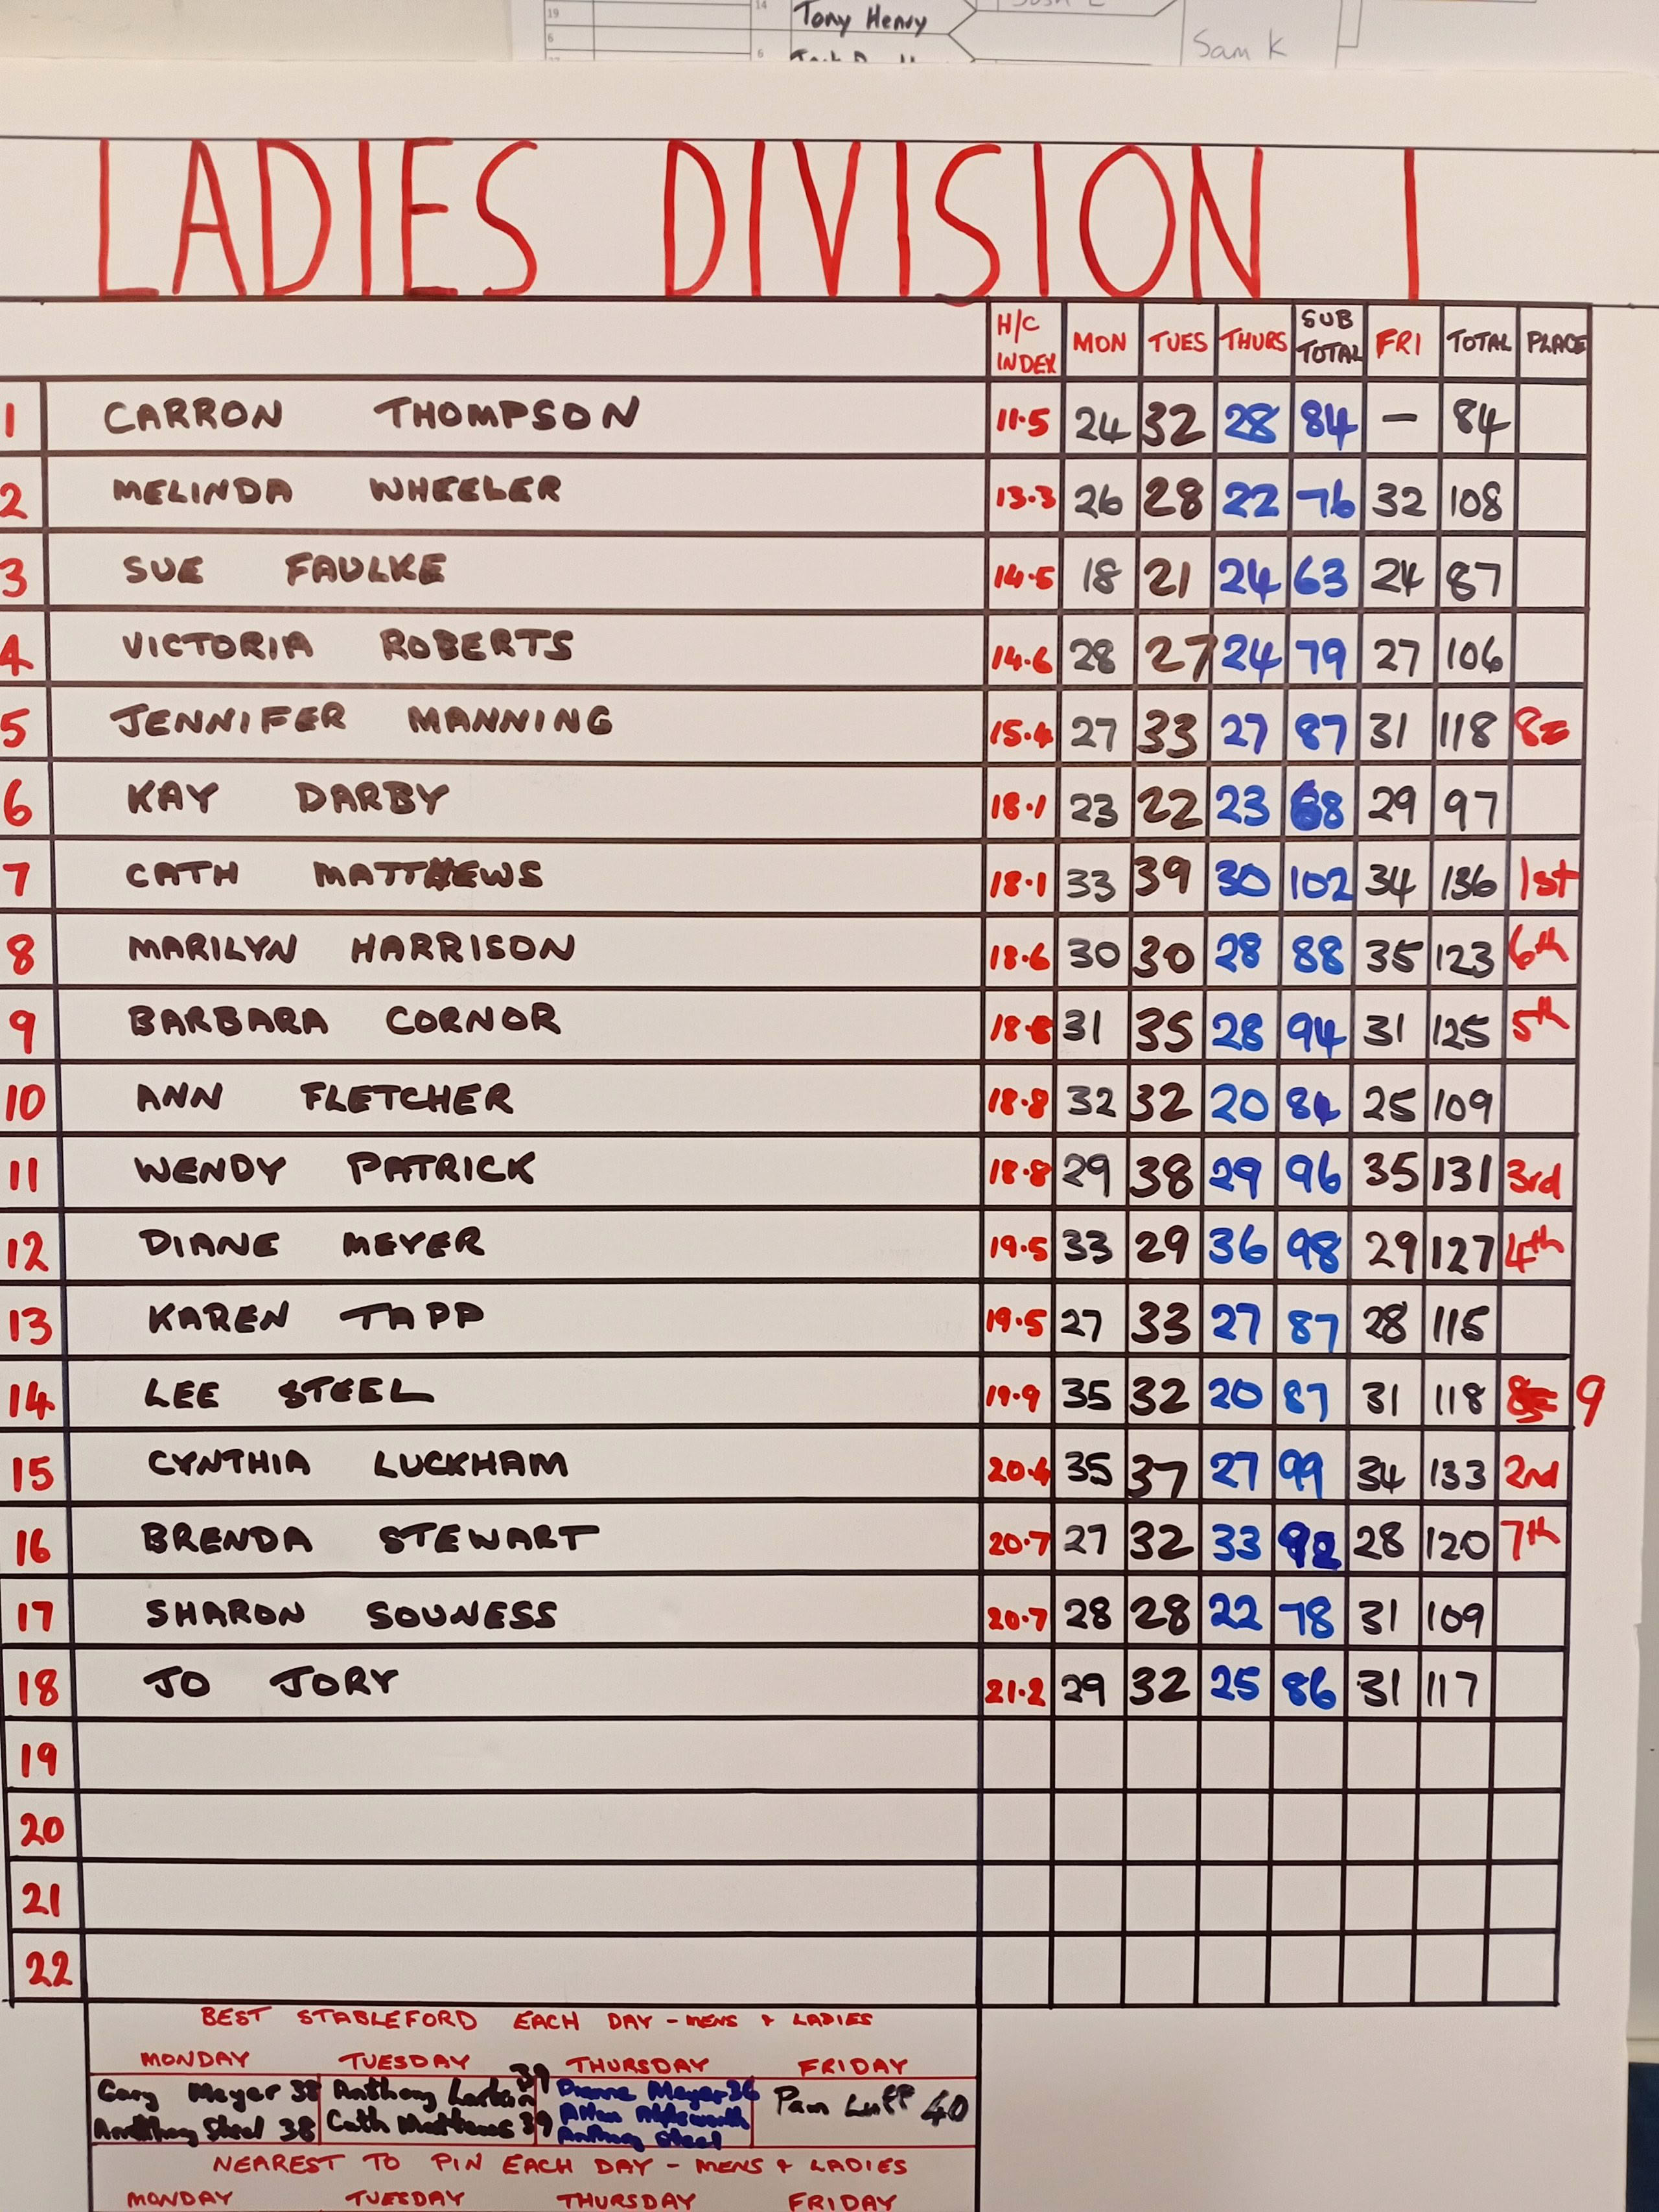 19 14 Tony Henry
6 6 Sam K
LADIES DIVISION 1
H/C INDEX MON TUES THURS SUB TOTAL FRI TOTAL PLACE
1 CARRON THOMPSON 11.5 24 32 28 84 — 84
2 MELINDA WHEELER 13.3 26 28 22 76 32 108
3 SUE FAULKE 14.5 18 21 24 63 24 87
4 VICTORIA ROBERTS 14.6 28 27 24 79 27 106
5 JENNIFER MANNING 15.4 27 33 27 87 31 118 8=
6 KAY DARBY 18.1 23 22 23 68 29 97
7 CATH MATTHEWS 18.1 33 39 30 102 34 136 1st
8 MARILYN HARRISON 18.6 30 30 28 88 35 123 6th
9 BARBARA CORNOR 18.8 31 35 28 94 31 125 5th
10 ANN FLETCHER 18.8 32 32 20 84 25 109
11 WENDY PATRICK 18.8 29 38 29 96 35 131 3rd
12 DIANE MEYER 19.5 33 29 36 98 29 127 4th
13 KAREN TAPP 19.5 27 33 27 87 28 115
14 LEE STEEL 19.9 35 32 20 87 31 118 9
15 CYNTHIA LUCKHAM 20.4 35 37 27 99 34 133 2nd
16 BRENDA STEWART 20.7 27 32 33 92 28 120 7th
17 SHARON SOUNESS 20.7 28 28 22 78 31 109
18 JO JORY 21.2 29 32 25 86 31 117
19
20
21
22
BEST STABLEFORD EACH DAY - MENS & LADIES
MONDAY TUESDAY THURSDAY FRIDAY
Gary Meyer 38 Anthony Larkin 39 Dianne Meyer 36 Pam Luff 40
Anthony Steel 38 Cath Matthews 39 Allan
Anthony Steel
NEAREST TO PIN EACH DAY - MENS & LADIES
MONDAY TUESDAY THURSDAY FRIDAY